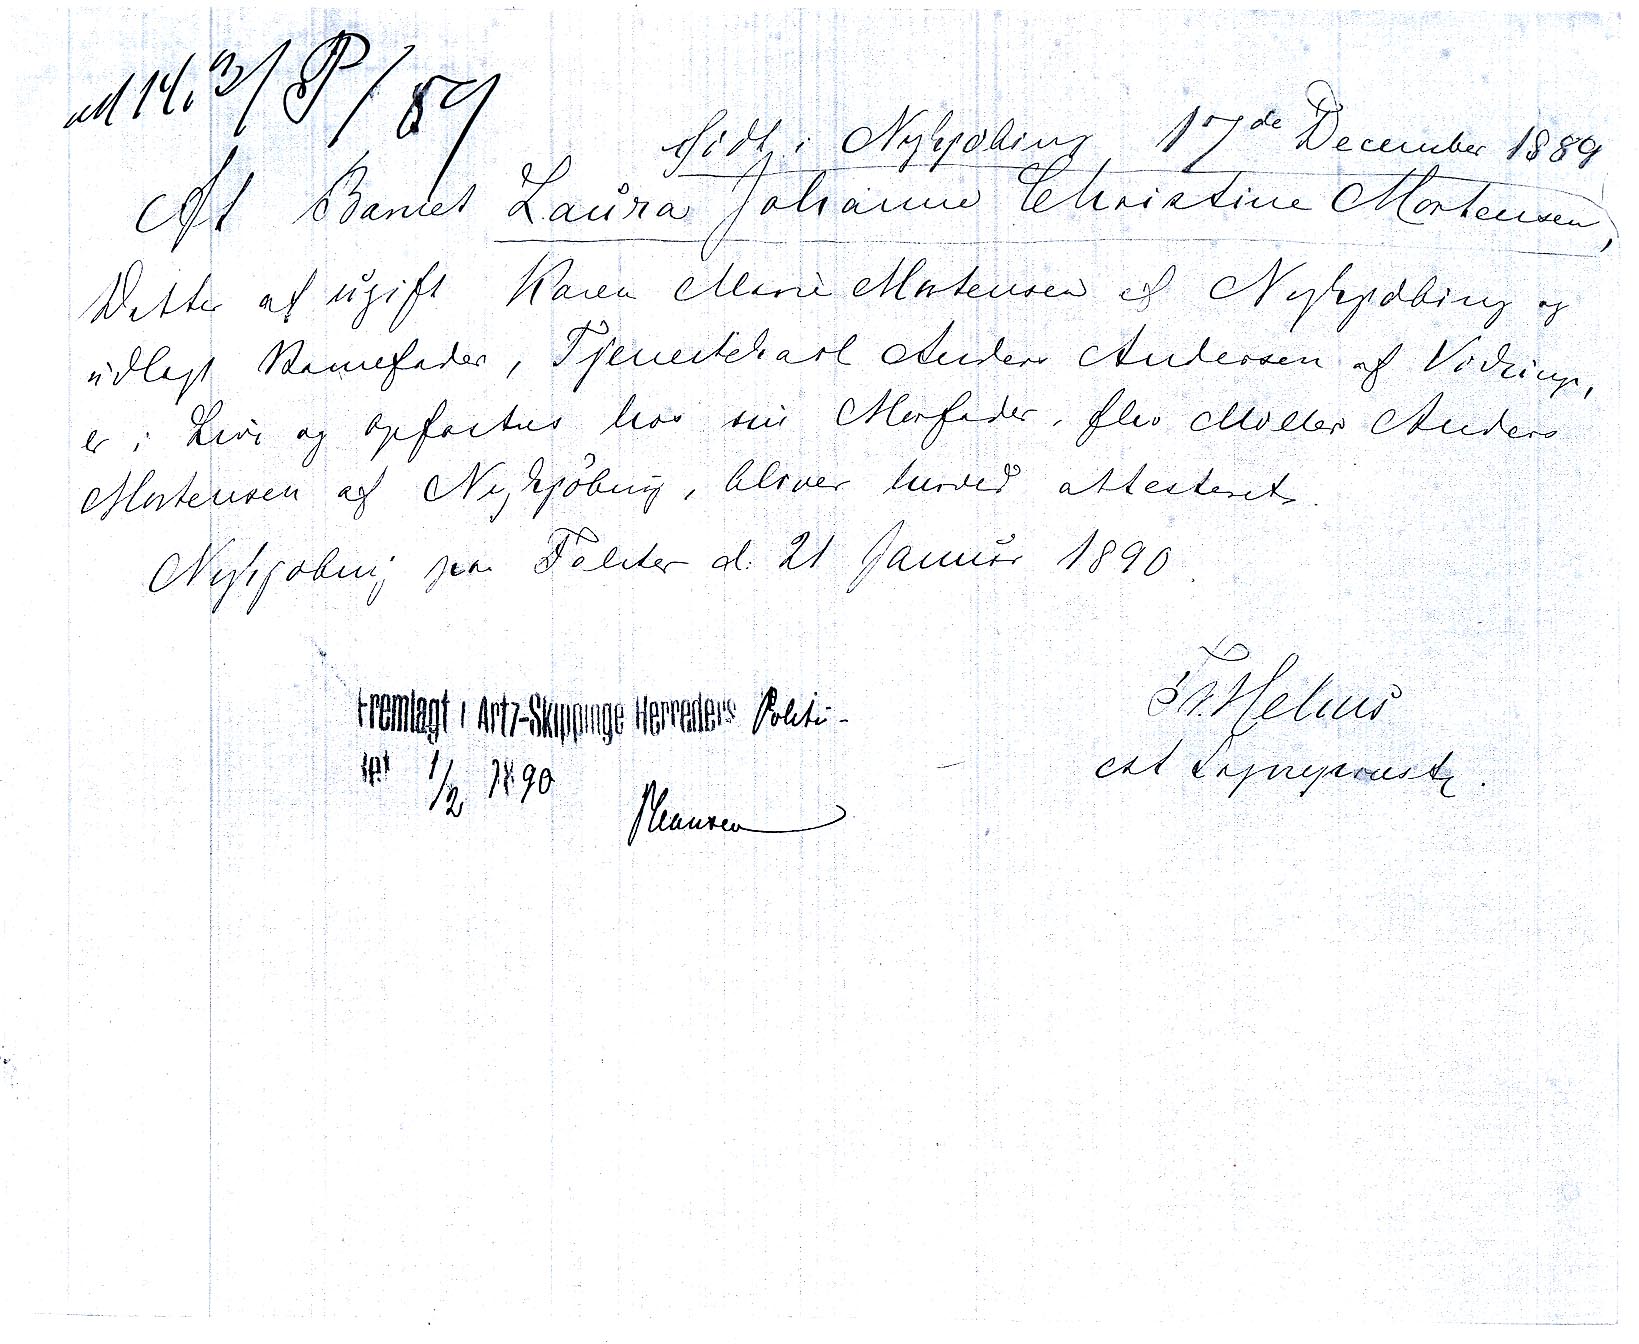 ad 14. 3/P/89
født i Nykjøbing 17de December 1889
At Barnet Laura Johanne Christine Mortensen,
Datter af ugift Karen Marie Mortensen af Nykjøbing og
udlagt Barnefader, Tjenestekarl Anders Andersen af
er i Live og opfostres hos sin Morfader, Møller Anders
Mortensen af Nykjøbing, bliver herved attesteret.
Nykjøbing paa Falster d. 21 Januar 1890.
Helms
cst Sognepræst
Fremlagt i Arts-Skippinge Herreders Politi-
ret 1/2 1890
Hansen